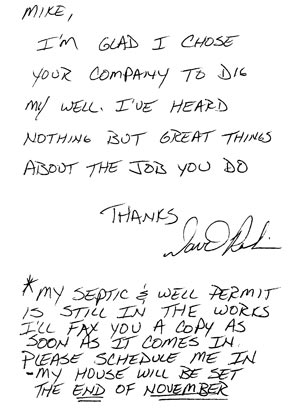 MIKE,
I'M GLAD I CHOSE
YOUR COMPANY TO DIG
MY WELL. I'VE HEARD
NOTHING BUT GREAT THINGS
ABOUT THE JOB YOU DO
THANKS
*MY SEPTIC & WELL PERMIT
IS STILL IN THE WORKS
I'LL FAX YOU A COPY AS
SOON AS IT COMES IN.
PLEASE SCHEDULE ME IN
-MY HOUSE WILL BE SET
THE END OF NOVEMBER